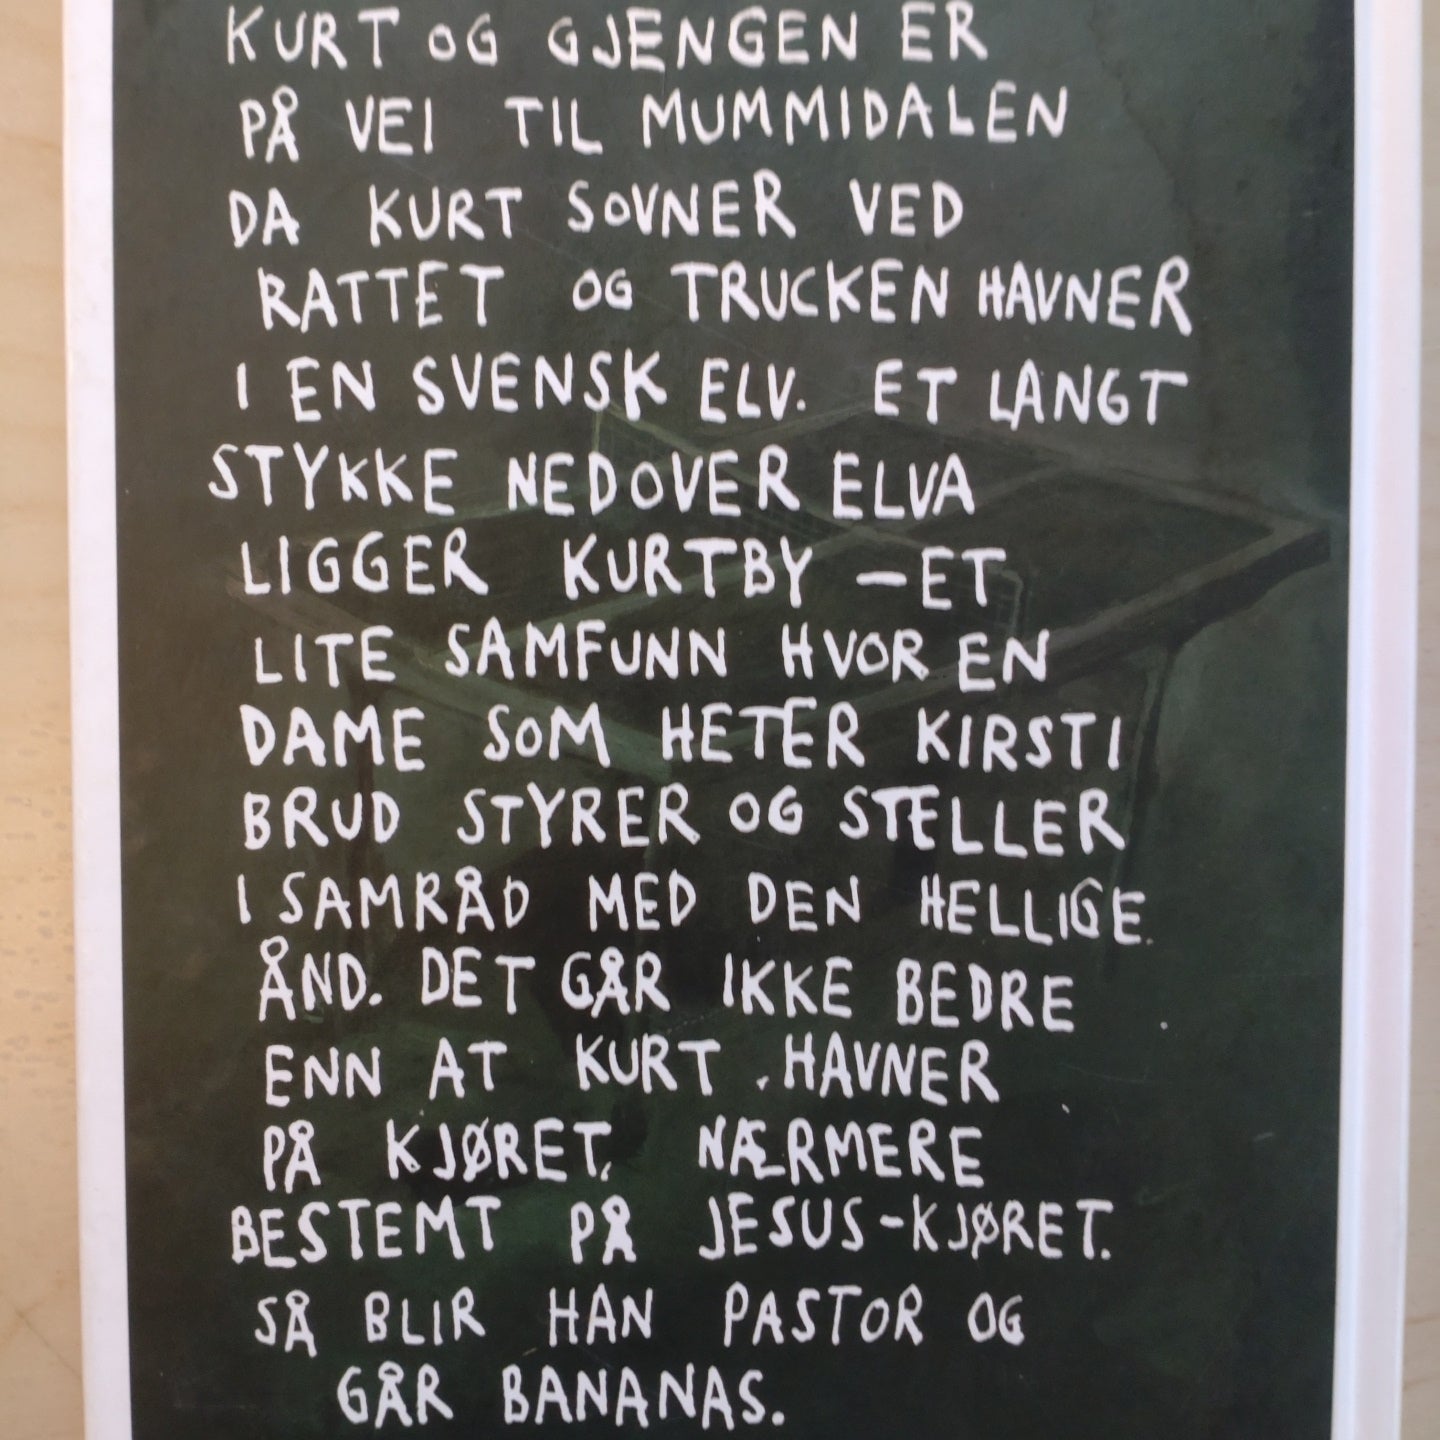 KURT OG GJENGEN ER
PÅ VEI TIL MUMMIDALEN
DA KURT SOVNER VED
RATTET OG TRUCKEN HAVNER
I EN SVENSK ELV. ET LANGT
STYKKE NEDOVER ELVA
LIGGER KURTBY – ET
LITE SAMFUNN HVOR EN
DAME SOM HETER KIRSTI
BRUD STYRER OG STELLER
I SAMRÅD MED DEN HELLIGE
ÅND. DET GÅR IKKE BEDRE
ENN AT KURT HAVNER
PÅ KJØRET, NÆRMERE
BESTEMT PÅ JESUS-KJØRET.
SÅ BLIR HAN PASTOR OG
GÅR BANANAS.